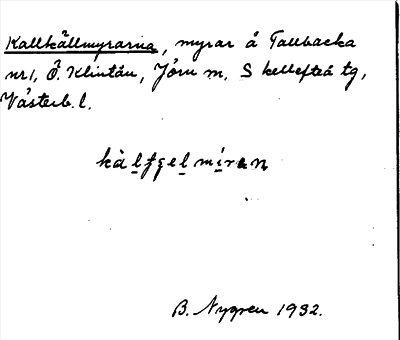 Kallkällmyrarna, myrar å Tallbacka
nr 1, Ö. Klintån, Jörn m, Skellefteå tg,
Västerb. l.
B. Nygren 1932.